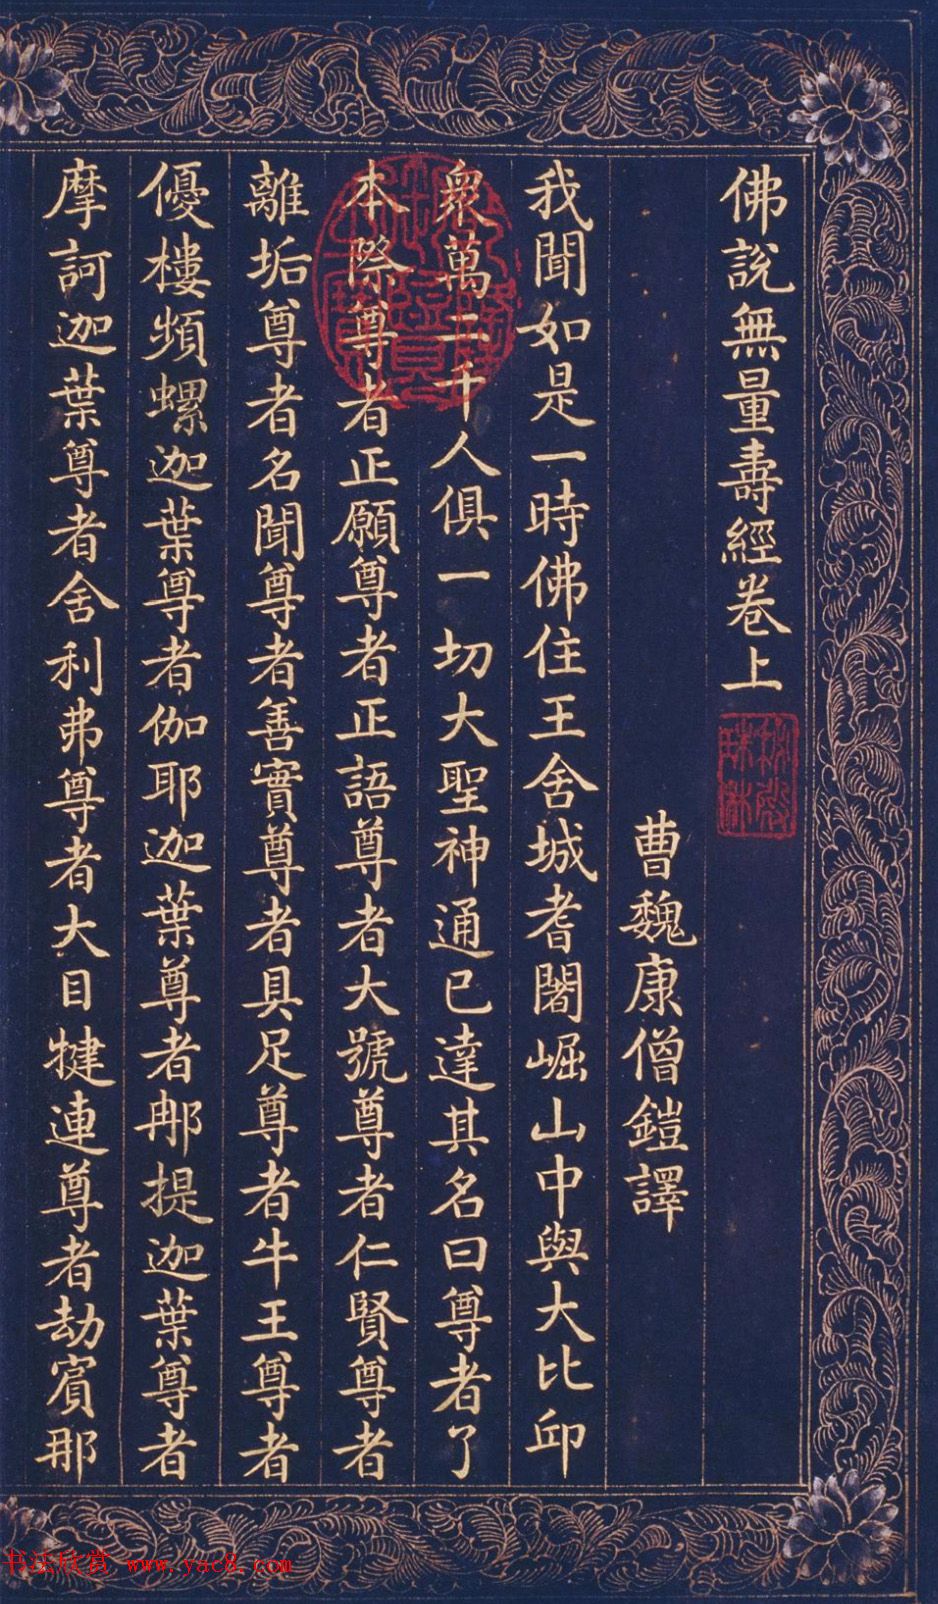 佛說無量壽經卷上
曹魏康僧鎧譯
我聞如是一時佛住王舍城耆闍崛山中與大比邱
衆萬二千人俱一切大聖神通已達其名曰尊者了
本際尊者正願尊者正語尊者大號尊者仁賢尊者
離垢尊者名聞尊者善實尊者具足尊者牛王尊者
優樓頻螺迦葉尊者伽耶迦葉尊者那提迦葉尊者
摩訶迦葉尊者舍利弗尊者大目犍連尊者劫賓那
书法欣赏 www.yac8.com